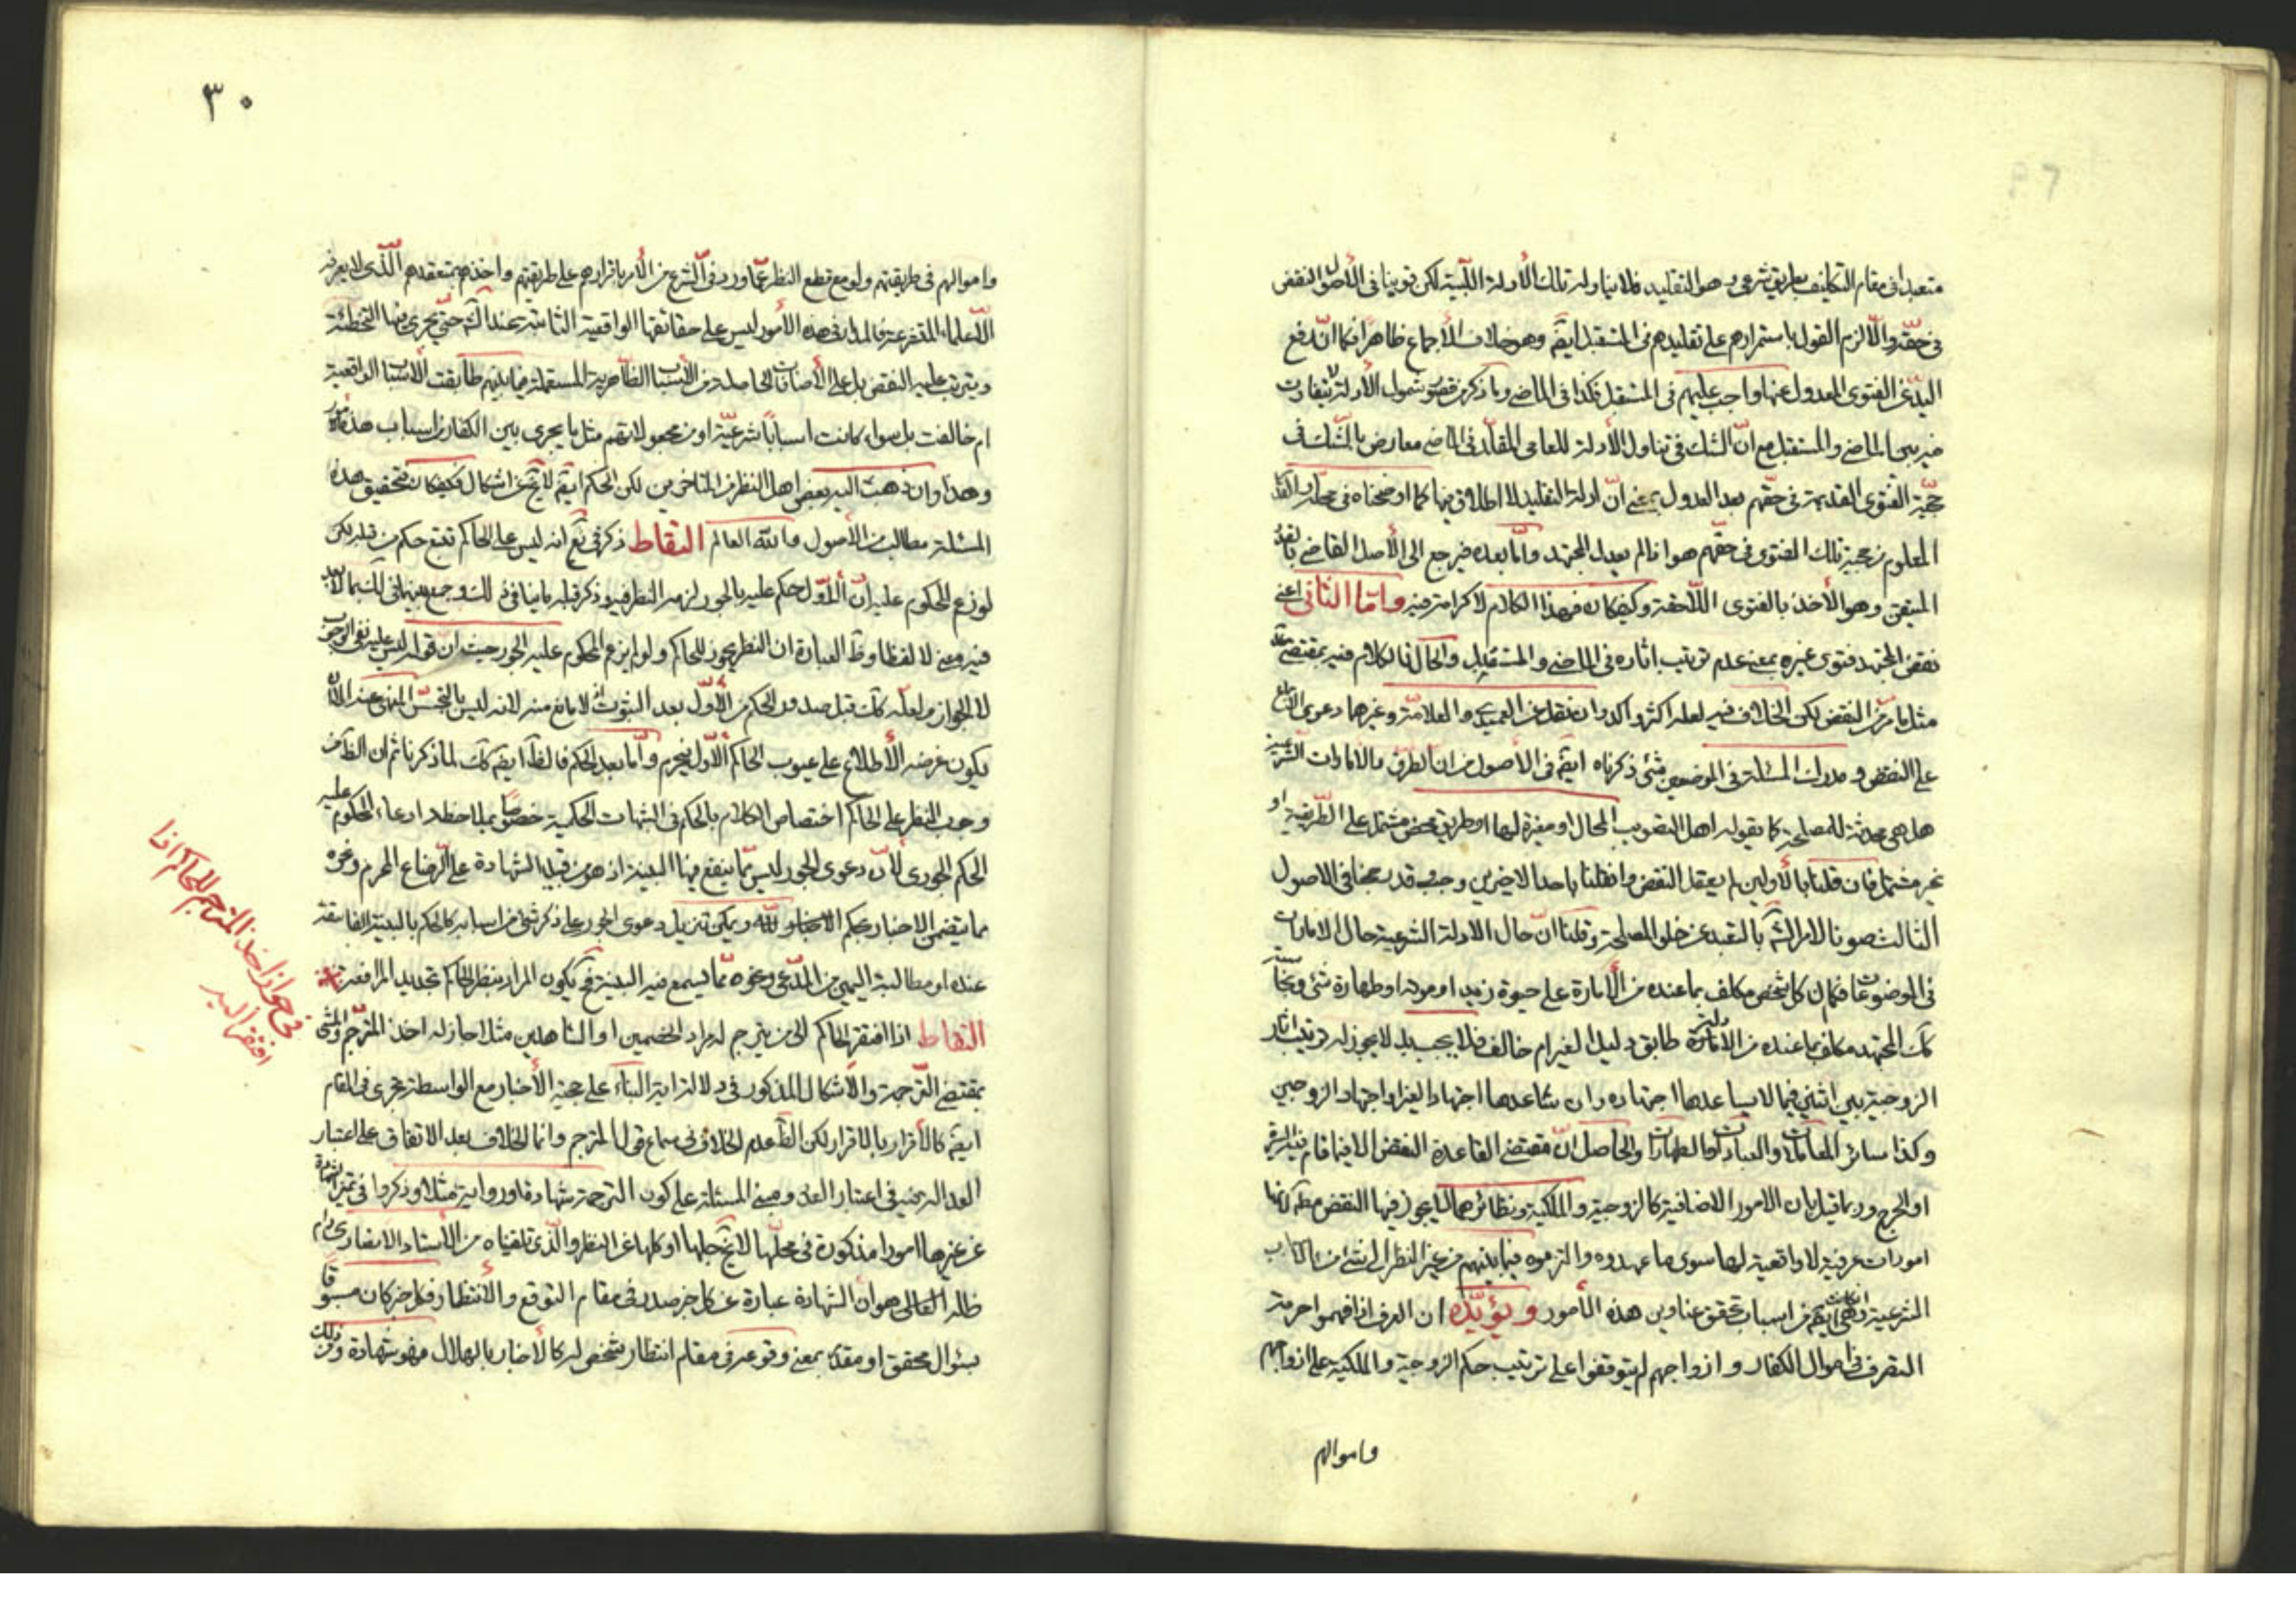 متعبدا فى مقام التكليف بطريق شرعى وهو التقليد فلا يناوله تلك الأدلة اللبية لكن قوينا فى الأصول النقض
فى حقه والّا لزم القول باستمرارهم على تقليدهم فى المستقبل ايضا وهو خلاف الاجماع ظاهرا فكما ان رفع
اليد عن الفتوى المعدول عنها واجب عليهم فى المستقبل فكذا فى الماضى وما ذكر من قصور شمول الأدلة لا يتفاوت
فيه بين الماضى والمستقبل مع انّ الشك فى تناول الأدلة للعامى المقلد فى الماضى معارض بالشك فى
حجية الفتوى القديمة فى حقهم بعد العدول بمعنى انّ ادلة التقليد لا اطلاق فيها كما اوضحناه فى محله
المعلوم من حجية تلك الفتوى فى حقهم هو ما لم يعدل المجتهد وامّا بعده فيرجع الى الأصل القاضى بالقدر
المتيقن وهو الأخذ بالفتوى اللّاحقة وكيفكان فهذا الكلام لا كرامة فيه وامّا الثانى اعنى
نقض المجتهد فتوى غيره بمعنى عدم ترتيب اثاره فى الماضى والمستقبل والحال فالكلام فيه بمقتضى
مثل ما مرّ من النقض لكن الخلاف فيه لعله اكثر واكد وان نقل عن العميدى والعلامة وغيرهما دعوى الاجماع
على النقض ومدرك المسئلة فى الموضعين شئ ذكرناه ايضا فى الأصول من ان الطرق والامارات الشرعية
هل هى محدثة للمصلحة كما يقوله اهل التصويب المحال او مغيرة لها او طريق محض مشتمل على الطريقية او
غير مشتمل فان قلنا بالأولين لم يعقل النقض وان قلنا باحد الاخيرين وجب وقد رجحنا فى الاصول
الثالث صونا لامر الش بالتعبد عن خلو المصلحة وقلنا انّ حال الادلة الشرعية حال الامارات
فى الموضوعات فكما ان كل شخص مكلف بما عنده من الأمارة على حيوة زيد او موته او طهارة شئ ونجاسته
كك المجتهد مكلف بما عنده من الأمارة طابق دليل الغير ام خالف فلا يجب بل لا يجوز له ترتيب اثار
الزوجية بين اثنين فيما لا يساعدها اجتهاده وان ساعدها اجتهاد الغير او اجتهاد الزوجين
وكذا سائر المعاملات والعبادات والطهارات والحاصل انّ مقتضى القاعدة النقض الا فيما قام فيه السيرة
او الحرج وربما قيل بان الامور الاضافية كالزوجية والملكية ونظائرهما لا يجوز فيها النقض مط لانها
امورات عرفية لا واقعية لها سوى ما عهدوه والتزموه فيما بينهم من غير النظر الى شئ من الاسباب
الشرعية وان كانت هى ايضا من اسباب تحقق عناوين هذه الأمور ويؤيّده ان العرف اذا فهموا حرمة
التصرف فى اموال الكفار وازواجهم لم يتوقفوا على ترتيب حكم الزوجية والملكية على ازواجهم
واموالهم
٣٠
واموالهم فى طريقتهم ولو مع قطع النظر عمّا ورد فى الشرع من الأمر باقرارهم على طريقتهم واخذهم بمعتقدهم الذى لا يعرفه
الّا العلماء المتفرعة فالمدار فى هذه الأمور ليس على حقائقها الواقعية الثابتة عند الله حتى يجرى فيها التخطئة
ويترتب عليه النقض بل على الأضافات الحاصلة من الأسباب الظاهرية المستعملة فيما بينهم طابقت الأسباب الواقعية
ام خالفت بل سواء كانت اسبابا شرعيّة او من مجعولاتهم مثل ما يجرى بين الكفار من اسباب هذه الأمور
وهذا وان ذهب اليه بعض اهل النظر من المتاخرين لكن الحكم ايضا لا يخ عن اشكال وكيفكان فتحقيق هذه
المسئلة مطالب من الأصول والله العالم التقاط ذكر فى يع انه ليس على الحاكم تتبع حكم من قبله لكن
لو زعم المحكوم عليه انّ الأوّل حكم عليه بالجور لزمه النظر فيه وذكر قبله ما ينافى ذلك وجمع بينهما فى لك بما لا بعد
فيه معنى لا لفظا وظ العبارة ان النظر يجوز للحاكم ولو لم يزعم المحكوم عليه الجور حيث انّ قوله ليس عليه نفى الوجوب
لا الجواز ولعلّه كك قبل صدور الحكم من الأوّل بعد الثبوت لا مانع منه لانه ليس بالتجسّس المنهى عنه الا ان
يكون غرضه الأطلاع على عيوب الحاكم الأوّل فيحرم وامّا بعد الحكم فالظ ايضا كك لما ذكرنا ثم ان الظاهر
وجوب النظر على الحاكم اختصاص الكلام بالحكم فى الشبهات الحكمية خصوصا بملاحظة ادعاء المحكوم عليه
الحكم الجورى لأن دعوى الجور ليس ممّا ينفع فيها البينة اذ هو من قبيل الشهادة على الرضاع المحرم ونحوه
مما يتضمن الاخبار بحكم الاخبار والله ويمكن تنزيل دعوى الجور على ذكر شئ من اسبابه كالحكم بالبينة الفاسقة
عنده او مطالبة اليمين من المدّعى ونحوه ممّا يسمع فيه البينة فح يكون المراد بنظر الحاكم تجديد المرافعة
التقاط اذا افتقر الحاكم الى من يترجم له مراد الخصمين او الشاهدين مثلا جاز له اخذ المترجم والمشى
بمقتضى الترجمة والأشكال المذكور فى دلالة اية النباء على حجية الأخبار مع الواسطة يجرى فى المقام
ايضا كالأقرار بالاقرار لكن الظ عدم الخلاف فى سماع قول المترجم وانما الخلاف بعد الاتفاق على اعتبار
العدالة فيه فى اعتبار العدد ومبنى المسئلة على كون الترجمة شهادة او رواية مثلا وذكروا فى تميز الشهادة
عن غيرها امورا مذكورة فى محلّها لا يخ جلها او كلها عن النظر والّذى تلقيناه من الأستاد الانصارى دام
ظله العالى هو ان الشهادة عبارة عن كل خبر صدر فى مقام التوقع والأنتظار فكل خبر كان مسبوقا
بسئوال محقق او مقدر بمعنى وقوعه فى مقام انتظار شخص له كالأخبار بالهلال فهو شهادة وذلك
فى جواز اخذ المترجم للحاكم اذا
افتقر اليه